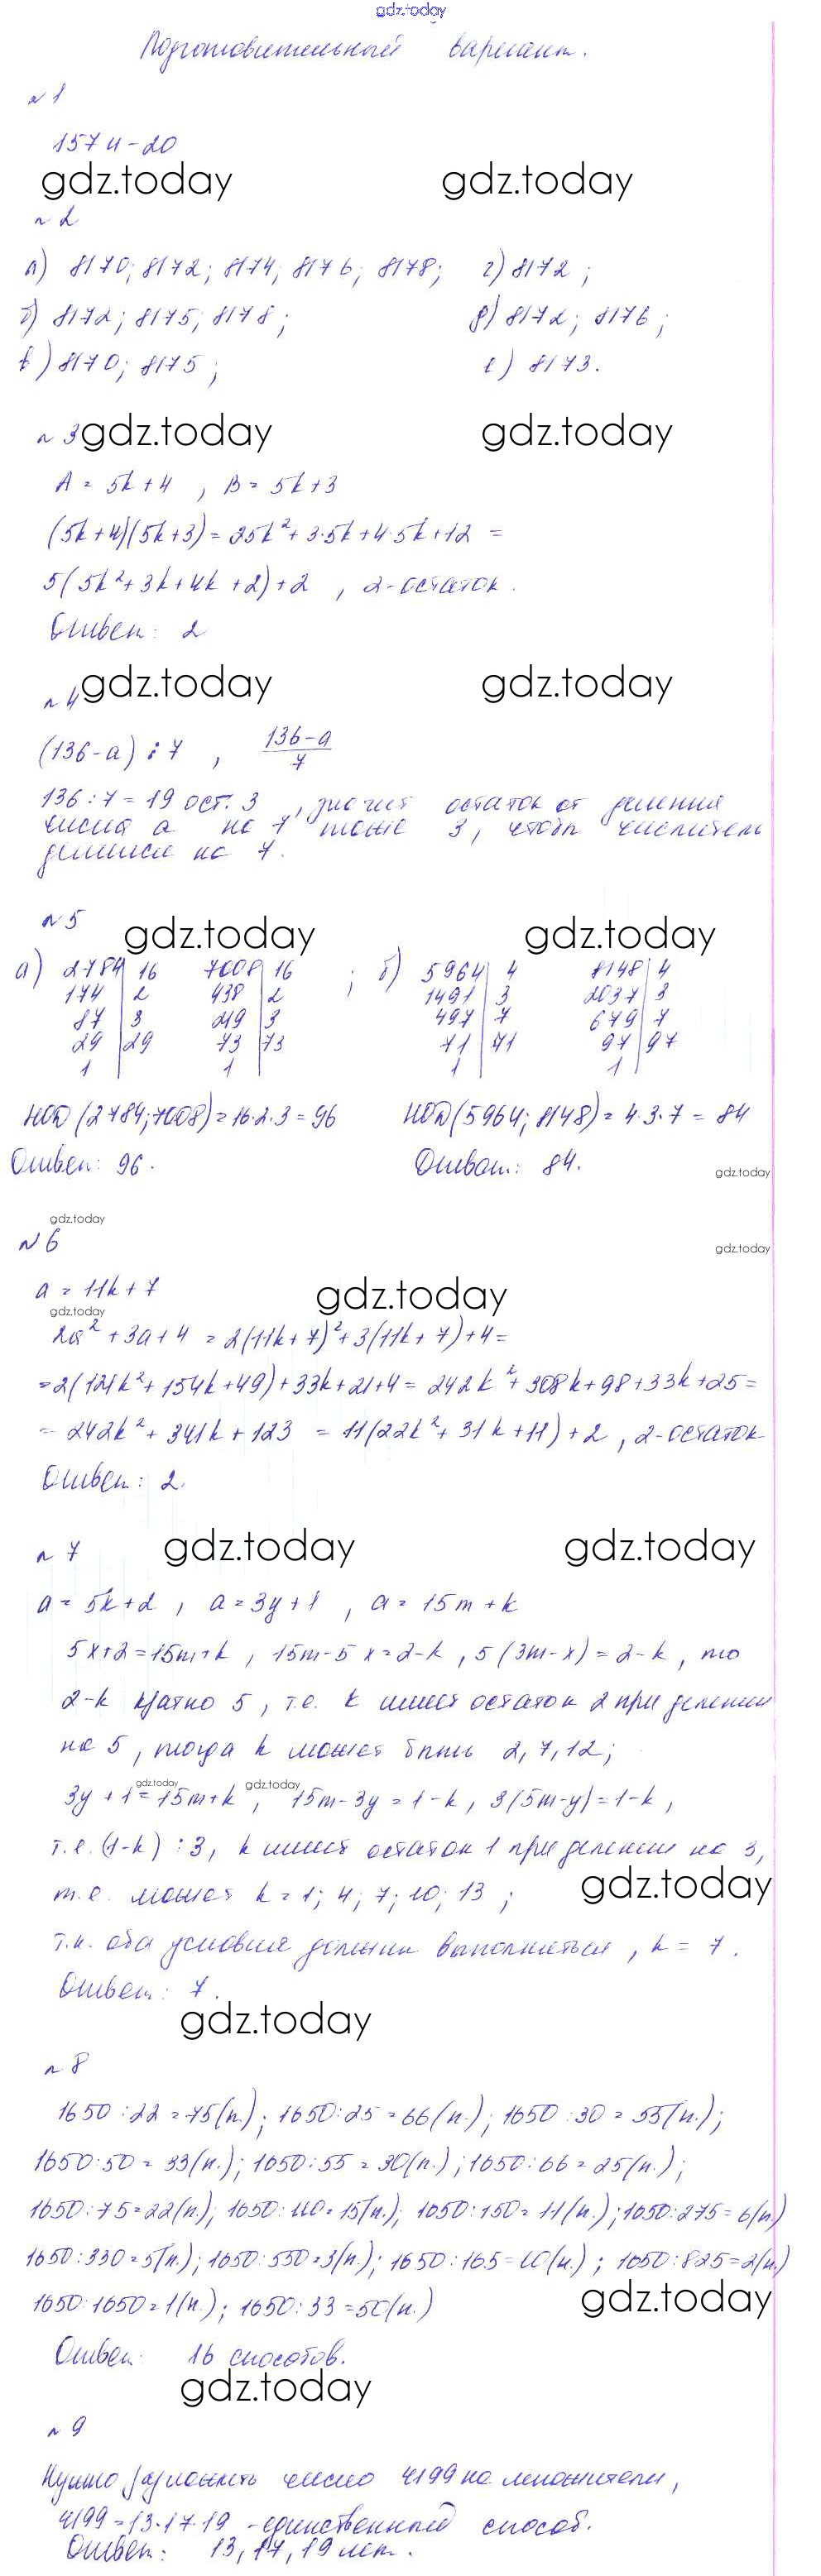 gdz.today
Подготовительный вариант.
№1
157 и -20
gdz.today gdz.today
№2
а) 8170; 8172; 8174; 8176; 8178; г) 8172;
б) 8172; 8175; 8178; д) 8172; 8176;
в) 8170; 8175; е) 8173.
№3 gdz.today gdz.today
A = 5k+4, B = 5k+3
(5k+4)(5k+3) = 25k²+3·5k+4·5k+12 =
5(5k²+3k+4k+2)+2, 2-остаток.
Ответ: 2
№4 gdz.today gdz.today
(136-a)⋮7, (136-a)/7
136:7=19 ост. 3, значит остаток от деления
числа a на 7 тоже 3, чтобы числитель
делился на 7.
№5 gdz.today gdz.today
а) 2784|16 7008|16 ; б) 5964|4 8148|4
174|2 438|2 1491|3 2037|3
87|3 219|3 497|7 679|7
29|29 73|73 71|71 97|97
1 1 1 1
НОД (2784; 7008) = 16·2·3 = 96 НОД (5964; 8148) = 4·3·7 = 84
Ответ: 96. Ответ: 84.
gdz.today
gdz.today
№6
gdz.today
a = 11k+7 gdz.today
gdz.today
2a²+3a+4 = 2(11k+7)²+3(11k+7)+4 =
=2(121k²+154k+49)+33k+21+4 = 242k²+308k+98+33k+25 =
= 242k²+341k+123 = 11(22k²+31k+11)+2, 2-остаток
Ответ: 2.
№7 gdz.today gdz.today
a = 5k+2, a = 3y+1, a = 15m+k
5x+2=15m+k, 15m-5x=2-k, 5(3m-x)=2-k, то
2-k кратно 5, т.е. k имеет остаток 2 при делении
на 5, тогда k может быть 2, 7, 12;
gdz.today gdz.today
3y+1=15m+k, 15m-3y=1-k, 3(5m-y)=1-k,
т.е. (1-k)⋮3, k имеет остаток 1 при делении на 3,
т.е. может k = 1; 4; 7; 10; 13; gdz.today
т.к. оба условия должны выполняться, k = 7.
Ответ: 7.
gdz.today
№8
1650:22=75(п.); 1650:25=66(п.); 1650:30=55(п.);
1650:50=33(п.); 1650:55=30(п.); 1650:66=25(п.);
1650:75=22(п.); 1650:110=15(п.); 1650:150=11(п.); 1650:275=6(п.)
1650:330=5(п.); 1650:550=3(п.); 1650:165=10(п.); 1650:825=2(п.)
1650:1650=1(п.); 1650:33=50(п.) gdz.today
Ответ: 16 способов.
gdz.today
№9
Нужно разложить число 4199 на множители,
4199=13·17·19 -единственный способ.
Ответ: 13, 17, 19 лет.